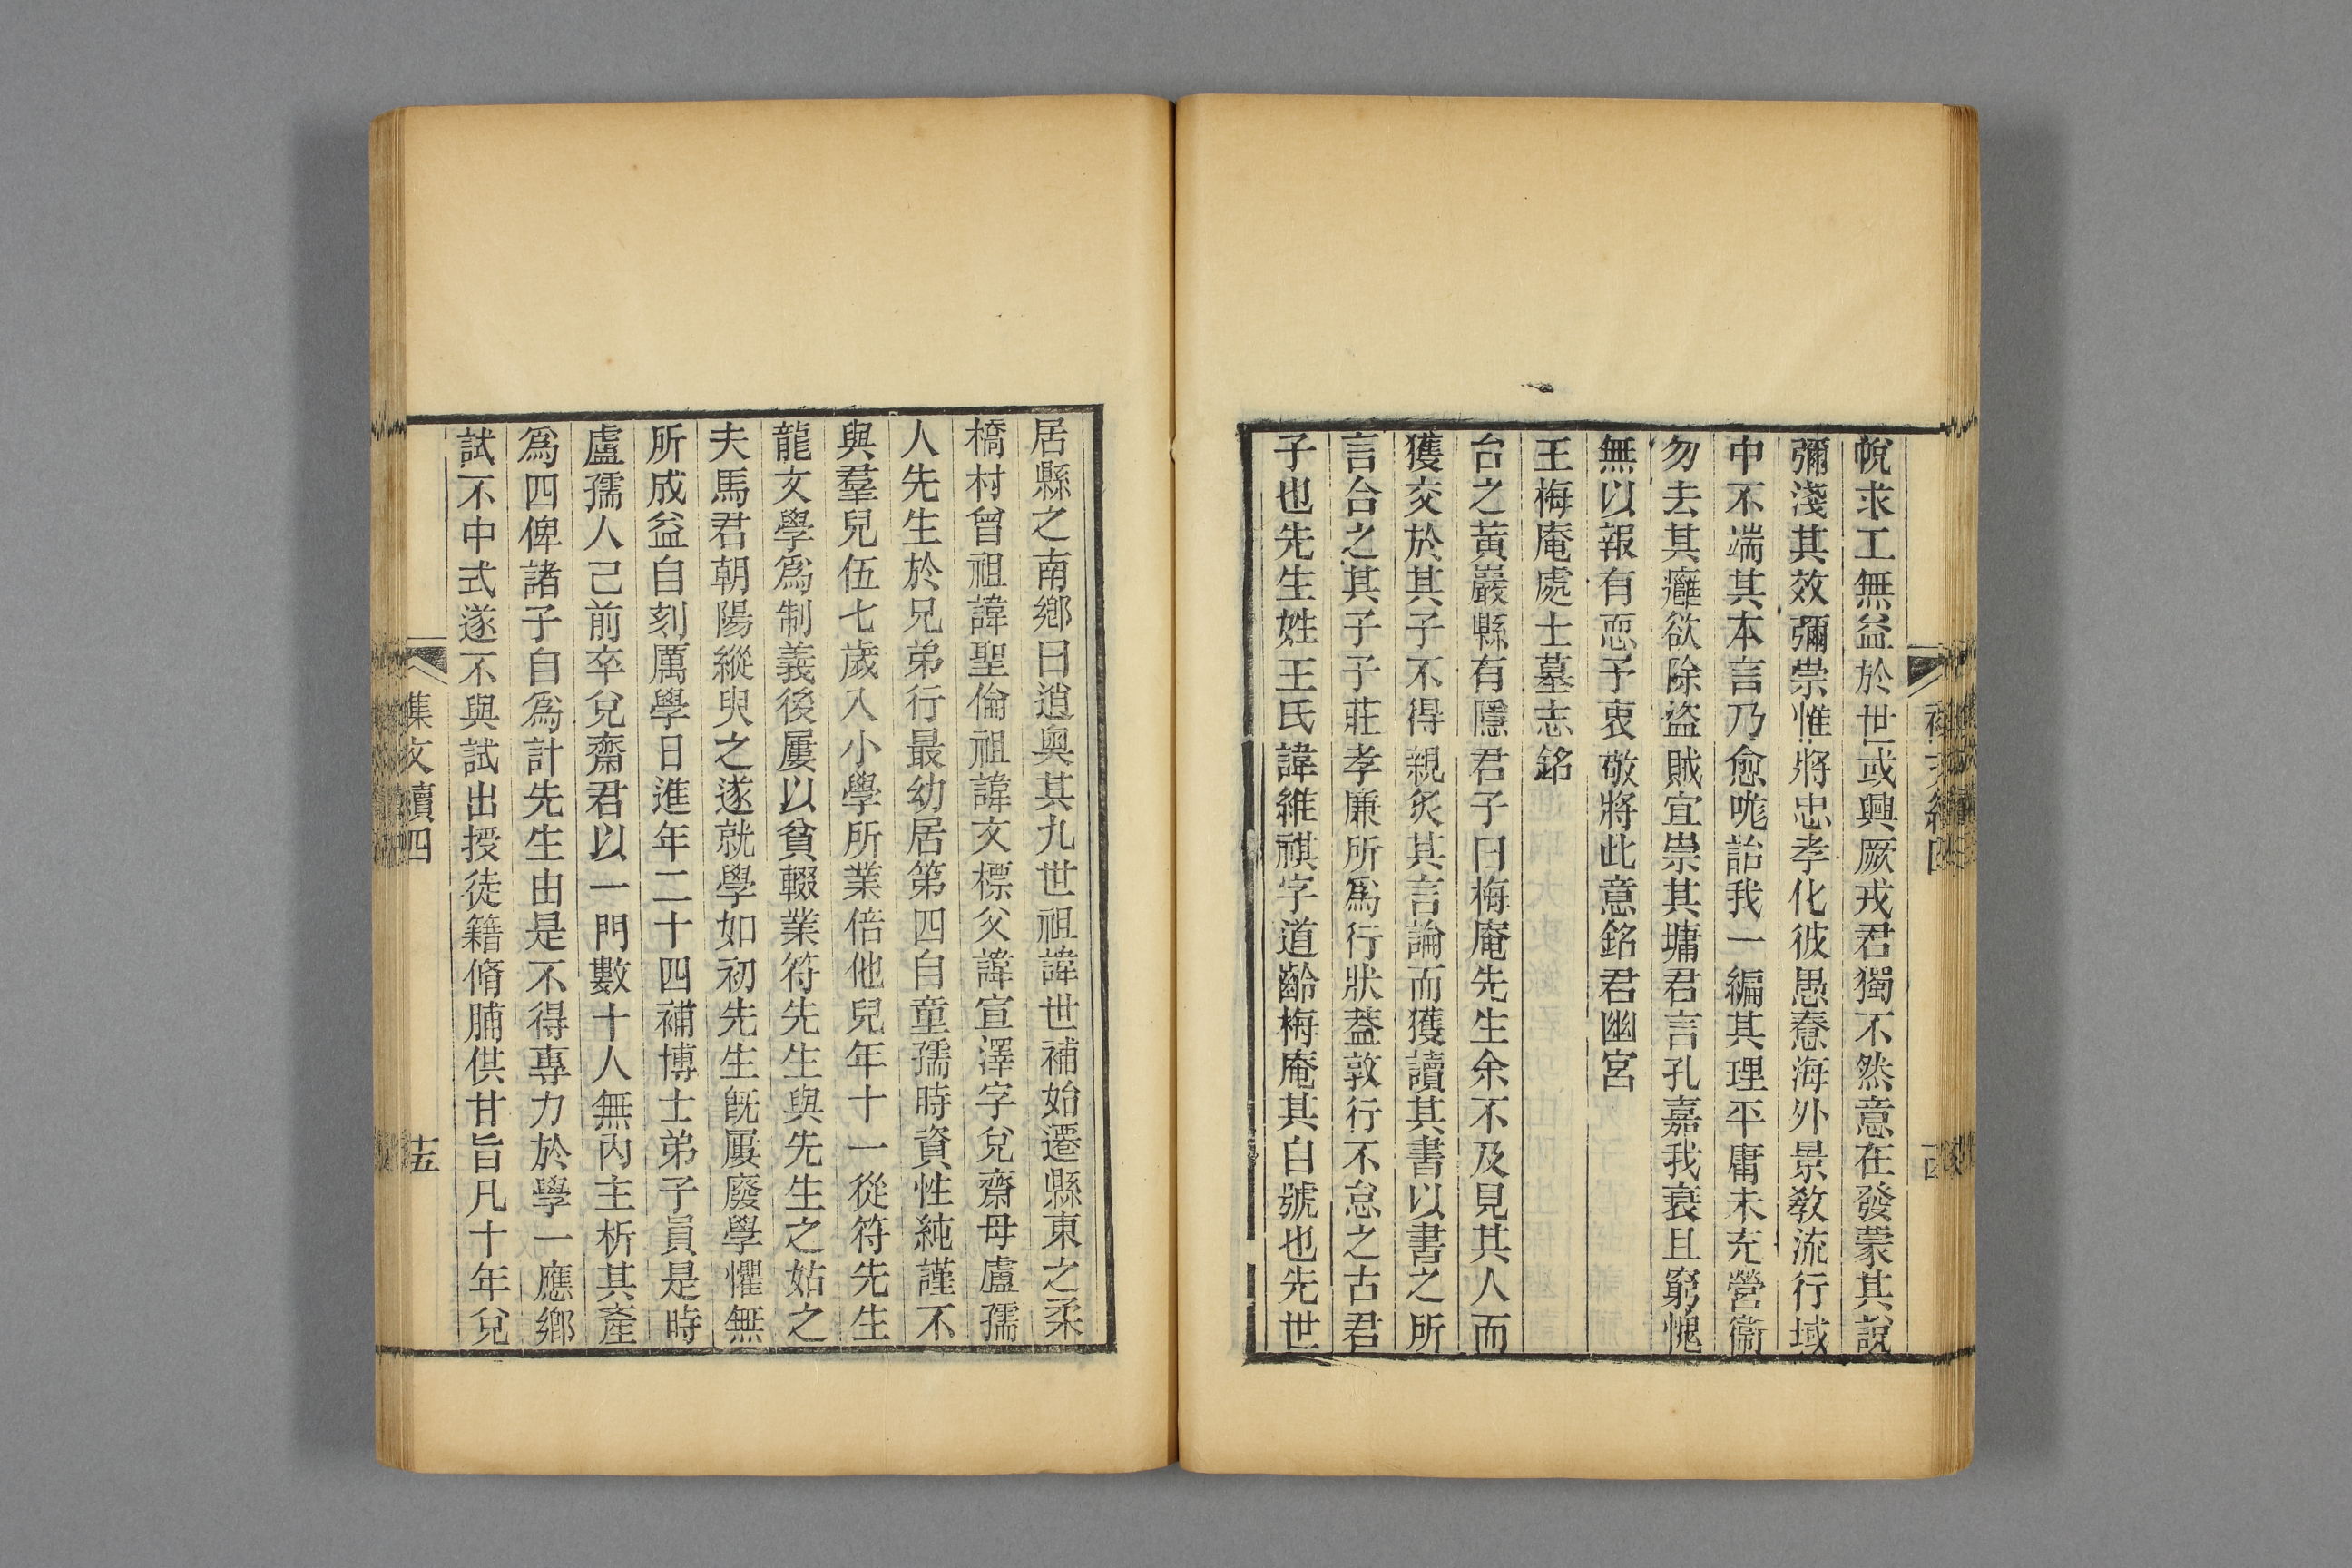 帨求工無益於世或興厥戎君獨不然意在發蒙其說
彌淺其效彌崇惟將忠孝化彼愚惷海外景教流行域
中不端其本言乃愈哤詒我一編其理平庸未充營衞
勿去其癰欲除盜賊宜崇其墉君言孔嘉我衰且窮愧
無以報有恧予衷敬將此意銘君幽宮
王梅庵處士墓志銘
台之黃巖縣有隱君子曰梅庵先生余不及見其人而
獲交於其子不得親炙其言論而獲讀其書以書之所
言合之其子子莊孝廉所爲行狀蓋敦行不怠之古君
子也先生姓王氏諱維祺字道齡梅庵其自號也先世
居縣之南鄉曰逍奧其九世祖諱世補始遷縣東之柔
橋村曾祖諱聖倫祖諱文標父諱宣澤字兌齋母盧孺
人先生於兄弟行最幼居第四自童孺時資性純謹不
與羣兒伍七歲入小學所業倍他兒年十一從符先生
龍文學爲制義後屢以貧輟業符先生與先生之姑之
夫馬君朝陽縱臾之遂就學如初先生旣屢廢學懼無
所成益自刻厲學日進年二十四補博士弟子員是時
盧孺人己前卒兌齋君以一門數十人無內主析其產
爲四俾諸子自爲計先生由是不得專力於學一應鄉
試不中式遂不與試出授徒籍脩脯供甘旨凡十年兌
集文續四
十五